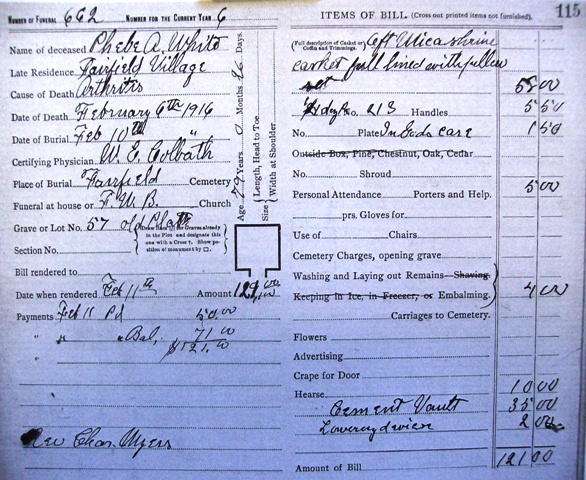 NUMBER OF FUNERAL 662 NUMBER FOR THE CURRENT YEAR 6
Name of deceased Phebe A. White
Late Residence Fairfield Village
Cause of Death Arthritis
Date of Death February 6th 1916
Date of Burial Feb 10th "
Certifying Physician W. E. Colbath
Place of Burial Fairfield Cemetery
Funeral at house or F. W. B. Church
Grave or Lot No. 57 old Platt
Draw lines for Graves already in the Plot and designate this one with a Cross †. Show position of monument by □.
Section No.
Age 79 Years 0 Months Days.
Size Length, Head to Toe
Width at Shoulder
Bill rendered to
Date when rendered Feb 11th Amount 121.00
Payments Feb 11 Pd 50.00
" " " Bal, 71.00
$121.00
Rev Chas. Myers
ITEMS OF BILL. (Cross out printed items not furnished). 115
(Full description of Casket or Coffin and Trimmings. 6ft Mica shrine
casket full lined with pillow
set 58 00
No. 213 Handles 5 50
No. Plate In Gods care 1 50
Outside Box, Pine, Chestnut, Oak, Cedar
No. Shroud
Personal Attendance Porters and Help. 5 00
prs. Gloves for
Use of Chairs.
Cemetery Charges, opening grave
Washing and Laying out Remains—Shaving
Keeping in Ice, in Freezer, or Embalming. 4 00
Carriages to Cemetery.
Flowers
Advertising
Crape for Door
Hearse 10 00
Cement Vault 35 00
Lowering device 2 00
Amount of Bill 121 00